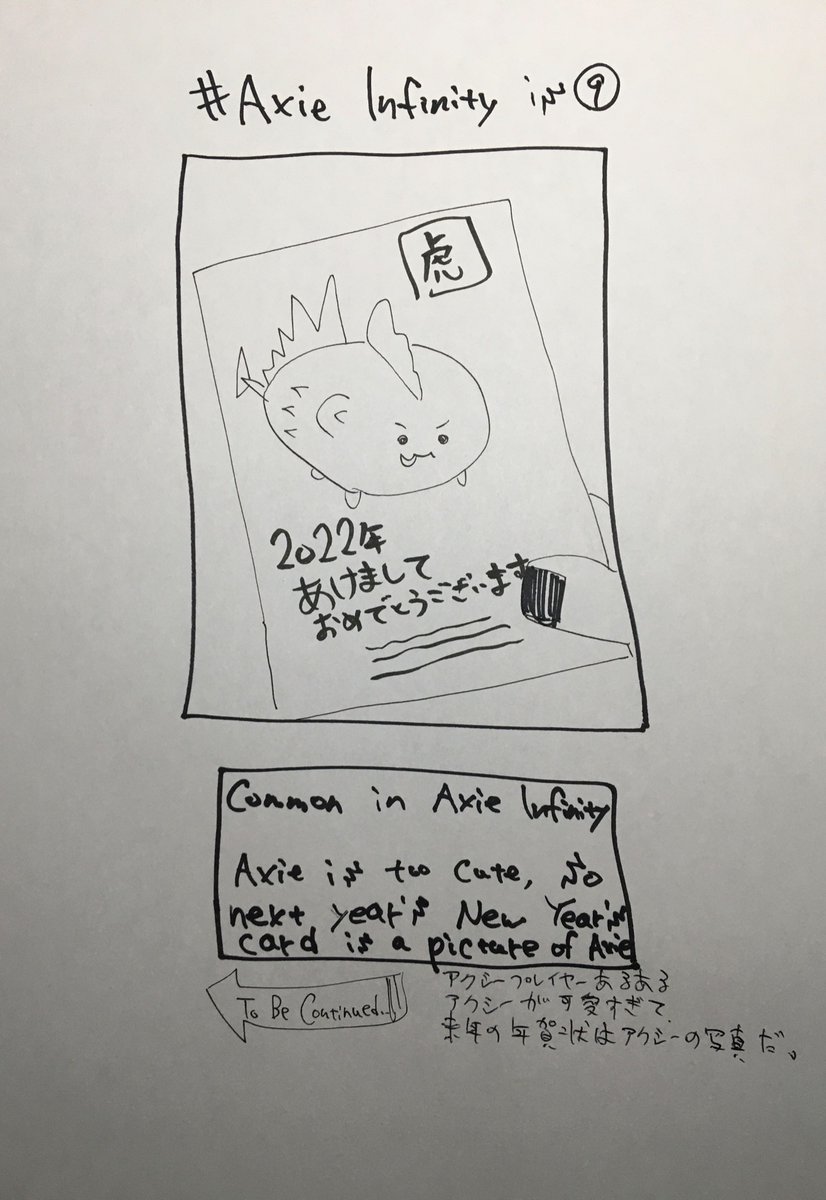 #Axie Infinity is ⑨
虎
2022年
あけまして
おめでとうございます
Common in Axie Infinity
Axie is too cute, so
next year's New Year's
card is a picture of Axie
To Be Continued...
アクシープレイヤーあるある
アクシーが可愛すぎて、
来年の年賀状はアクシーの写真だ。